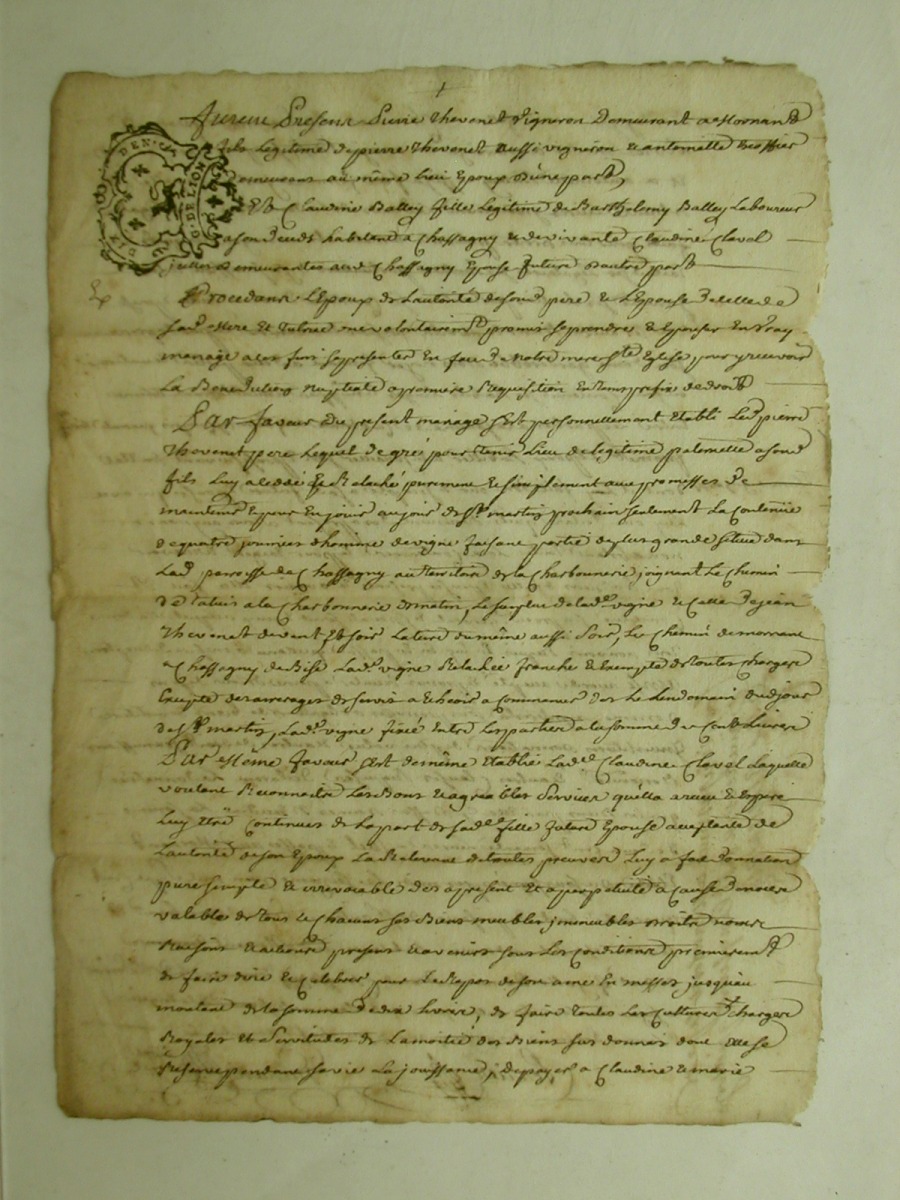 Furent Presens Pierre Thevenet Vigneron Demeurant a Mornand
fils Legitime de pierre Thevenet aussi vigneron & antoinette
demeurans au même Lieu Epoux d'une part,
Et Claudine Balley fille Legitime de Barthelemy Balley Laboureur
a son deceds habitant a Chassagny & de vivante Claudine Clavel
demeurantes aud Chassagny Epouse future d'autre part
Procedans L'Epoux de L'autorité de sond pere & L'Epouse de celle de
sad Mere Et Tutrice ont volontairemt promis se prendre & Epouser En vray
mariage a ces fins se presenter En face de Notre mere Ste Eglise pour y recevoir
La Benediction Nuptiale a premiere Requisition En tems prefix de droit
Par faveur du present mariage s'Est personnellement Etabli Led pierre
Thevenet pere Lequel de gré pour tenir Lieu de Legitime paternelle a sond
fils Luy a cedé & Relaché purement & simplement avec promesses de
maintenir & pour En jouir au jour de St martin prochain seulement La Contenüe
de quatre journées d'homme de vigne faisant partie de plus grande située dans
Lad paroisse de Chassagny au territoire de la Charbonnerie joignant Le Chemin
de a la Charbonnerie de matin, Le surplus de lad vigne & Celle de jean
Thevenet de vent, Et soir La terre du même aussi soir, Le Chemin de mornant
a Chassagny de Bise Lad vigne Relachée franche & Exempte de toutes charges
Excepté des arrerages de servis a Echeoir a Commencer Des Le Lendemain dud jour
de St martin, Lad vigne fixée Entre Les parties a la somme de Cent Livres
Par Même faveur s'Est de même Etablie Lade Claudine Clavel Laquelle
voulant Reconnaitre Les Bons & agréables Services qu'Ella a receu & Espere
Luy Etre Continués de La part de sade fille future Epouse acceptante de
L'autorité de son Epoux La Relevant de toutes preuves Luy a fait Donnation
pure simple & irrevocable des a present Et a perpetuité a Cause de noces
valable de tous & Chacuns ses Biens meubles jmmeubles droits noms
Raisons & actions presens & avenirs sous Les Conditions premieremt
de faire dire & Celebrer pour Le Repos de son ame En messes jusqu'au
montant de la somme de dix Livres, de faire toutes Les Cultures Charges
Royales Et Servitudes de La moitié des Biens sus donnés dont Elle se
Reserve pendant sa vie La jouissance, de payer a Claudine & marie